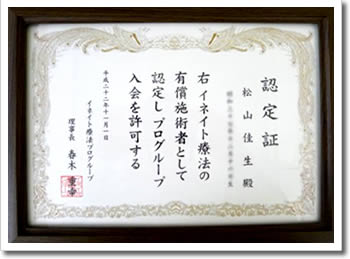 認定証
松山佳生 殿
右 イネイト療法の
有償施術者として
認定し プログループ
入会を許可する
平成二十二年十一月一日
イネイト療法プログループ
理事長 春木